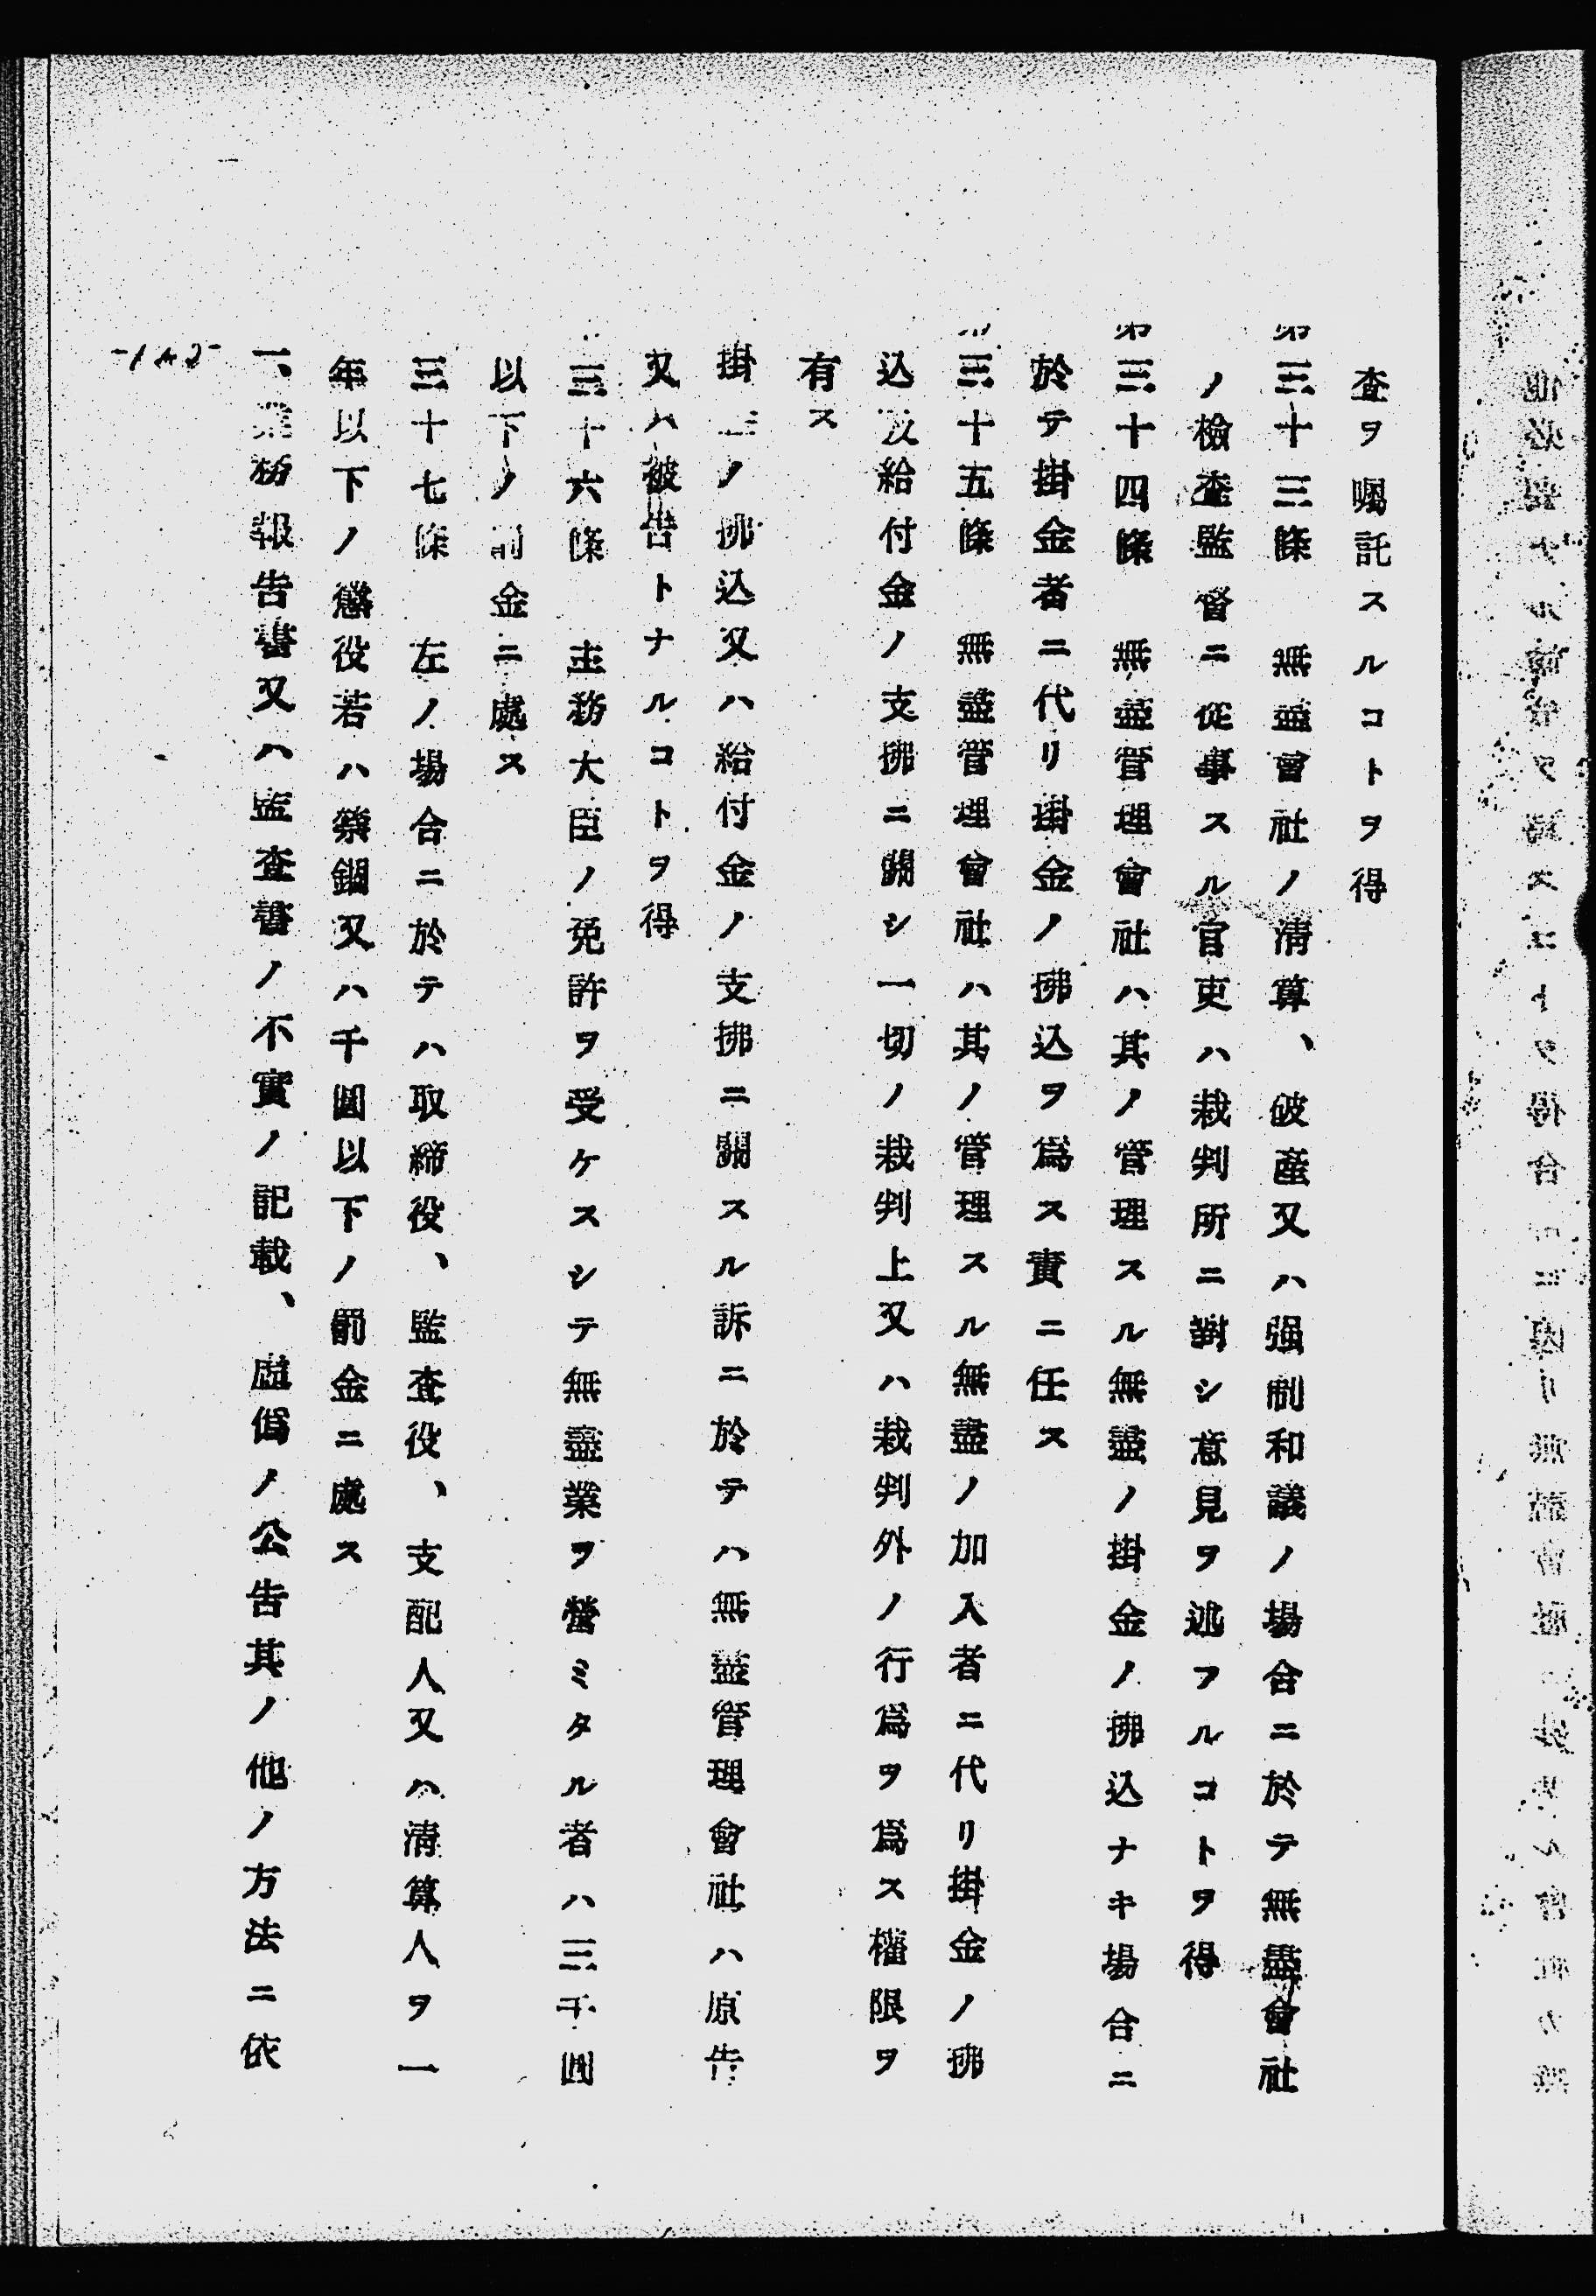 査ヲ囑託スルコトヲ得
第三十三條　無盡會社ノ清算、破產又ハ强制和議ノ場合ニ於テ無盡會社
ノ檢查監督ニ從事スル官吏ハ裁判所ニ對シ意見ヲ述フルコトヲ得
第三十四條　無盡管理會社ハ其ノ管理スル無盡ノ掛金ノ拂込ナキ場合ニ
於テ掛金者ニ代リ掛金ノ拂込ヲ爲ス責ニ任ス
第三十五條　無盡管理會社ハ其ノ管理スル無盡ノ加入者ニ代リ掛金ノ拂
込及給付金ノ支拂ニ關シ一切ノ裁判上又ハ裁判外ノ行爲ヲ爲ス權限ヲ
有ス
掛金ノ拂込又ハ給付金ノ支拂ニ關スル訴ニ於テハ無盡管理會社ハ原告
又ハ被告トナルコトヲ得
三十六條　主務大臣ノ免許ヲ受ケスシテ無盡業ヲ營ミタル者ハ三千圓
以下ノ罰金ニ處ス
三十七條　左ノ場合ニ於テハ取締役、監査役、支配人又ハ清算人ヲ一
年以下ノ懲役若ハ禁錮又ハ千圓以下ノ罰金ニ處ス
一、業務報告書又ハ監査書ノ不實ノ記載、虛僞ノ公告其ノ他ノ方法ニ依
-142-